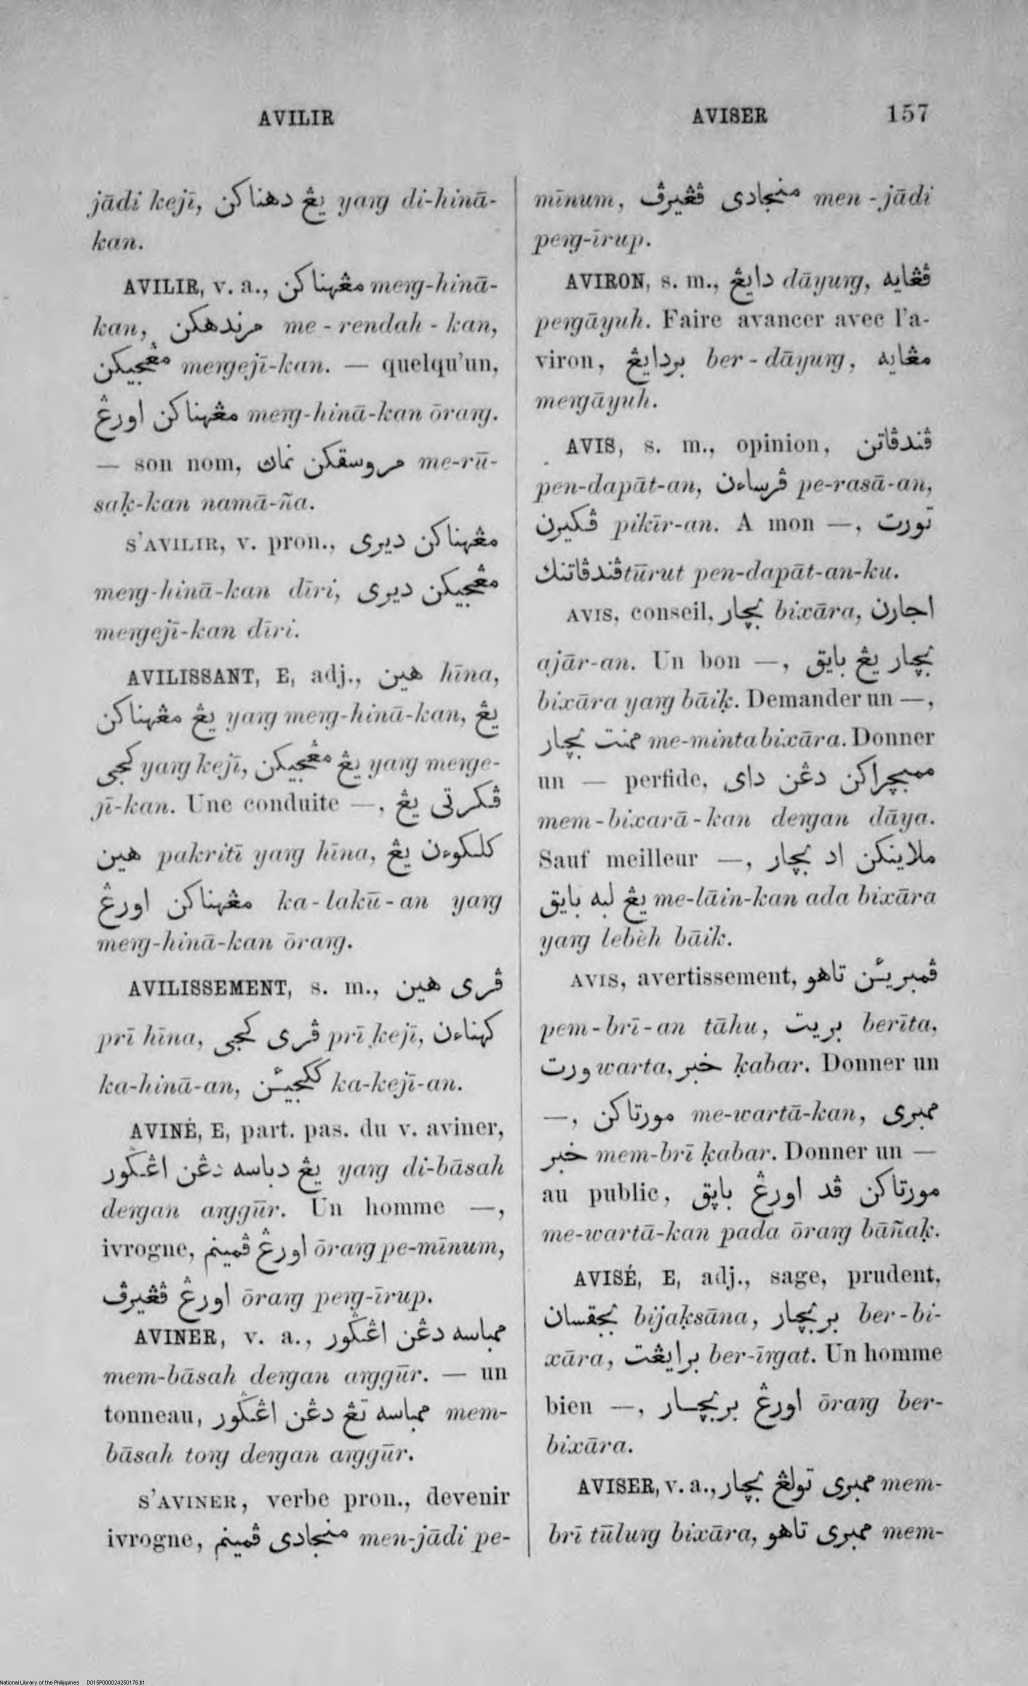 AVILIR
AVISER 157
jādi kejī, يڠ دهناكن yaŋg di-hinā-
kan.
AVILIR, v. a., مڠهناكن meŋg-hinā-
kan, مرندهكن me-rendah-kan,
مڠجيكن meŋgejī-kan. — quelqu'un,
مڠهناكن اورڠ meŋg-hinā-kan ōraŋg.
— son nom, مروسقكن نماڽ me-rū-
saḳ-kan namā-ña.
S'AVILIR, v. pron., مڠهناكن ديرى
meŋg-hinā-kan dīri, مڠجيكن ديرى
meŋgejī-kan dīri.
AVILISSANT, E, adj., هين hīna,
يڠ مڠهناكن yaŋg meŋg-hinā-kan, يڠ
كجى yaŋg kejī, يڠ مڠجيكن yaŋg meŋge-
jī-kan. Une conduite —, ڤكرتى يڠ
هين pakritī yaŋg hīna, كلكوءن يڠ
مڠهناكن اورڠ ka-lakū-an yaŋg
meŋg-hinā-kan ōraŋg.
AVILISSEMENT, s. m., ڤرى هين
prī hīna, ڤرى كجى prī kejī, كهناءن
ka-hinā-an, ككجيئن ka-kejī-an.
AVINÉ, E, part. pas. du v. aviner,
يڠ دباسه دڠن اڠڬور yaŋg di-bāsah
deŋgan aŋggūr. Un homme —,
ivrogne, اورڠ ڤمينم ōraŋg pe-mīnum,
اورڠ ڤڠيرڤ ōraŋg peŋg-īrup.
AVINER, v. a., ممباسه دڠن اڠڬور
mem-bāsah deŋgan aŋggūr. — un
tonneau, ممباسه تڠ دڠن اڠڬور mem-
bāsah toŋg deŋgan aŋggūr.
S'AVINER, verbe pron., devenir
ivrogne, منجادى ڤمينم men-jādi pe-
mīnum, منجادى ڤڠيرڤ men-jādi
peŋg-īrup.
AVIRON, s. m., دايڠ dāyuŋg, ڤڠايه
peŋgāyuh. Faire avancer avec l'a-
viron, بردايڠ ber-dāyuŋg, مڠايه
meŋgāyuh.
AVIS, s. m., opinion, ڤندڤاتن
pen-dapāt-an, ڤرساءن pe-rasā-an,
ڤكيرن pikīr-an. A mon —, تورت
ڤندڤاتنك tūrut pen-dapāt-an-ku.
AVIS, conseil, بچار bixāra, اجارن
ajār-an. Un bon —, بچار يڠ بايق
bixāra yaŋg bāiḳ. Demander un —,
ممنت بچار me-minta bixāra. Donner
un — perfide, ممبچراكن دڠن داى
mem-bixarā-kan deŋgan dāya.
Sauf meilleur —, ملاينكن اد بچار
يڠ لبه بايق me-lāin-kan ada bixāra
yaŋg lebèh bāik.
AVIS, avertissement, ڤمبريئن تاهو
pem-brī-an tāhu, بريت berīta,
ورت warta, خبر ḳabar. Donner un
—, مورتاكن me-wartā-kan, ممبرى
خبر mem-brī ḳabar. Donner un —
au public, مورتاكن ڤد اورڠ باڽق
me-wartā-kan pada ōraŋg bāñaḳ.
AVISÉ, E, adj., sage, prudent,
بجقسان bijaḳsāna, بربچار ber-bi-
xāra, برايڠت ber-īŋgat. Un homme
bien —, اورڠ بربچار ōraŋg ber-
bixāra.
AVISER, v. a., ممبرى تولڠ بچار mem-
brī tūluŋg bixāra, ممبرى تاهو mem-
National Library of the Philippines